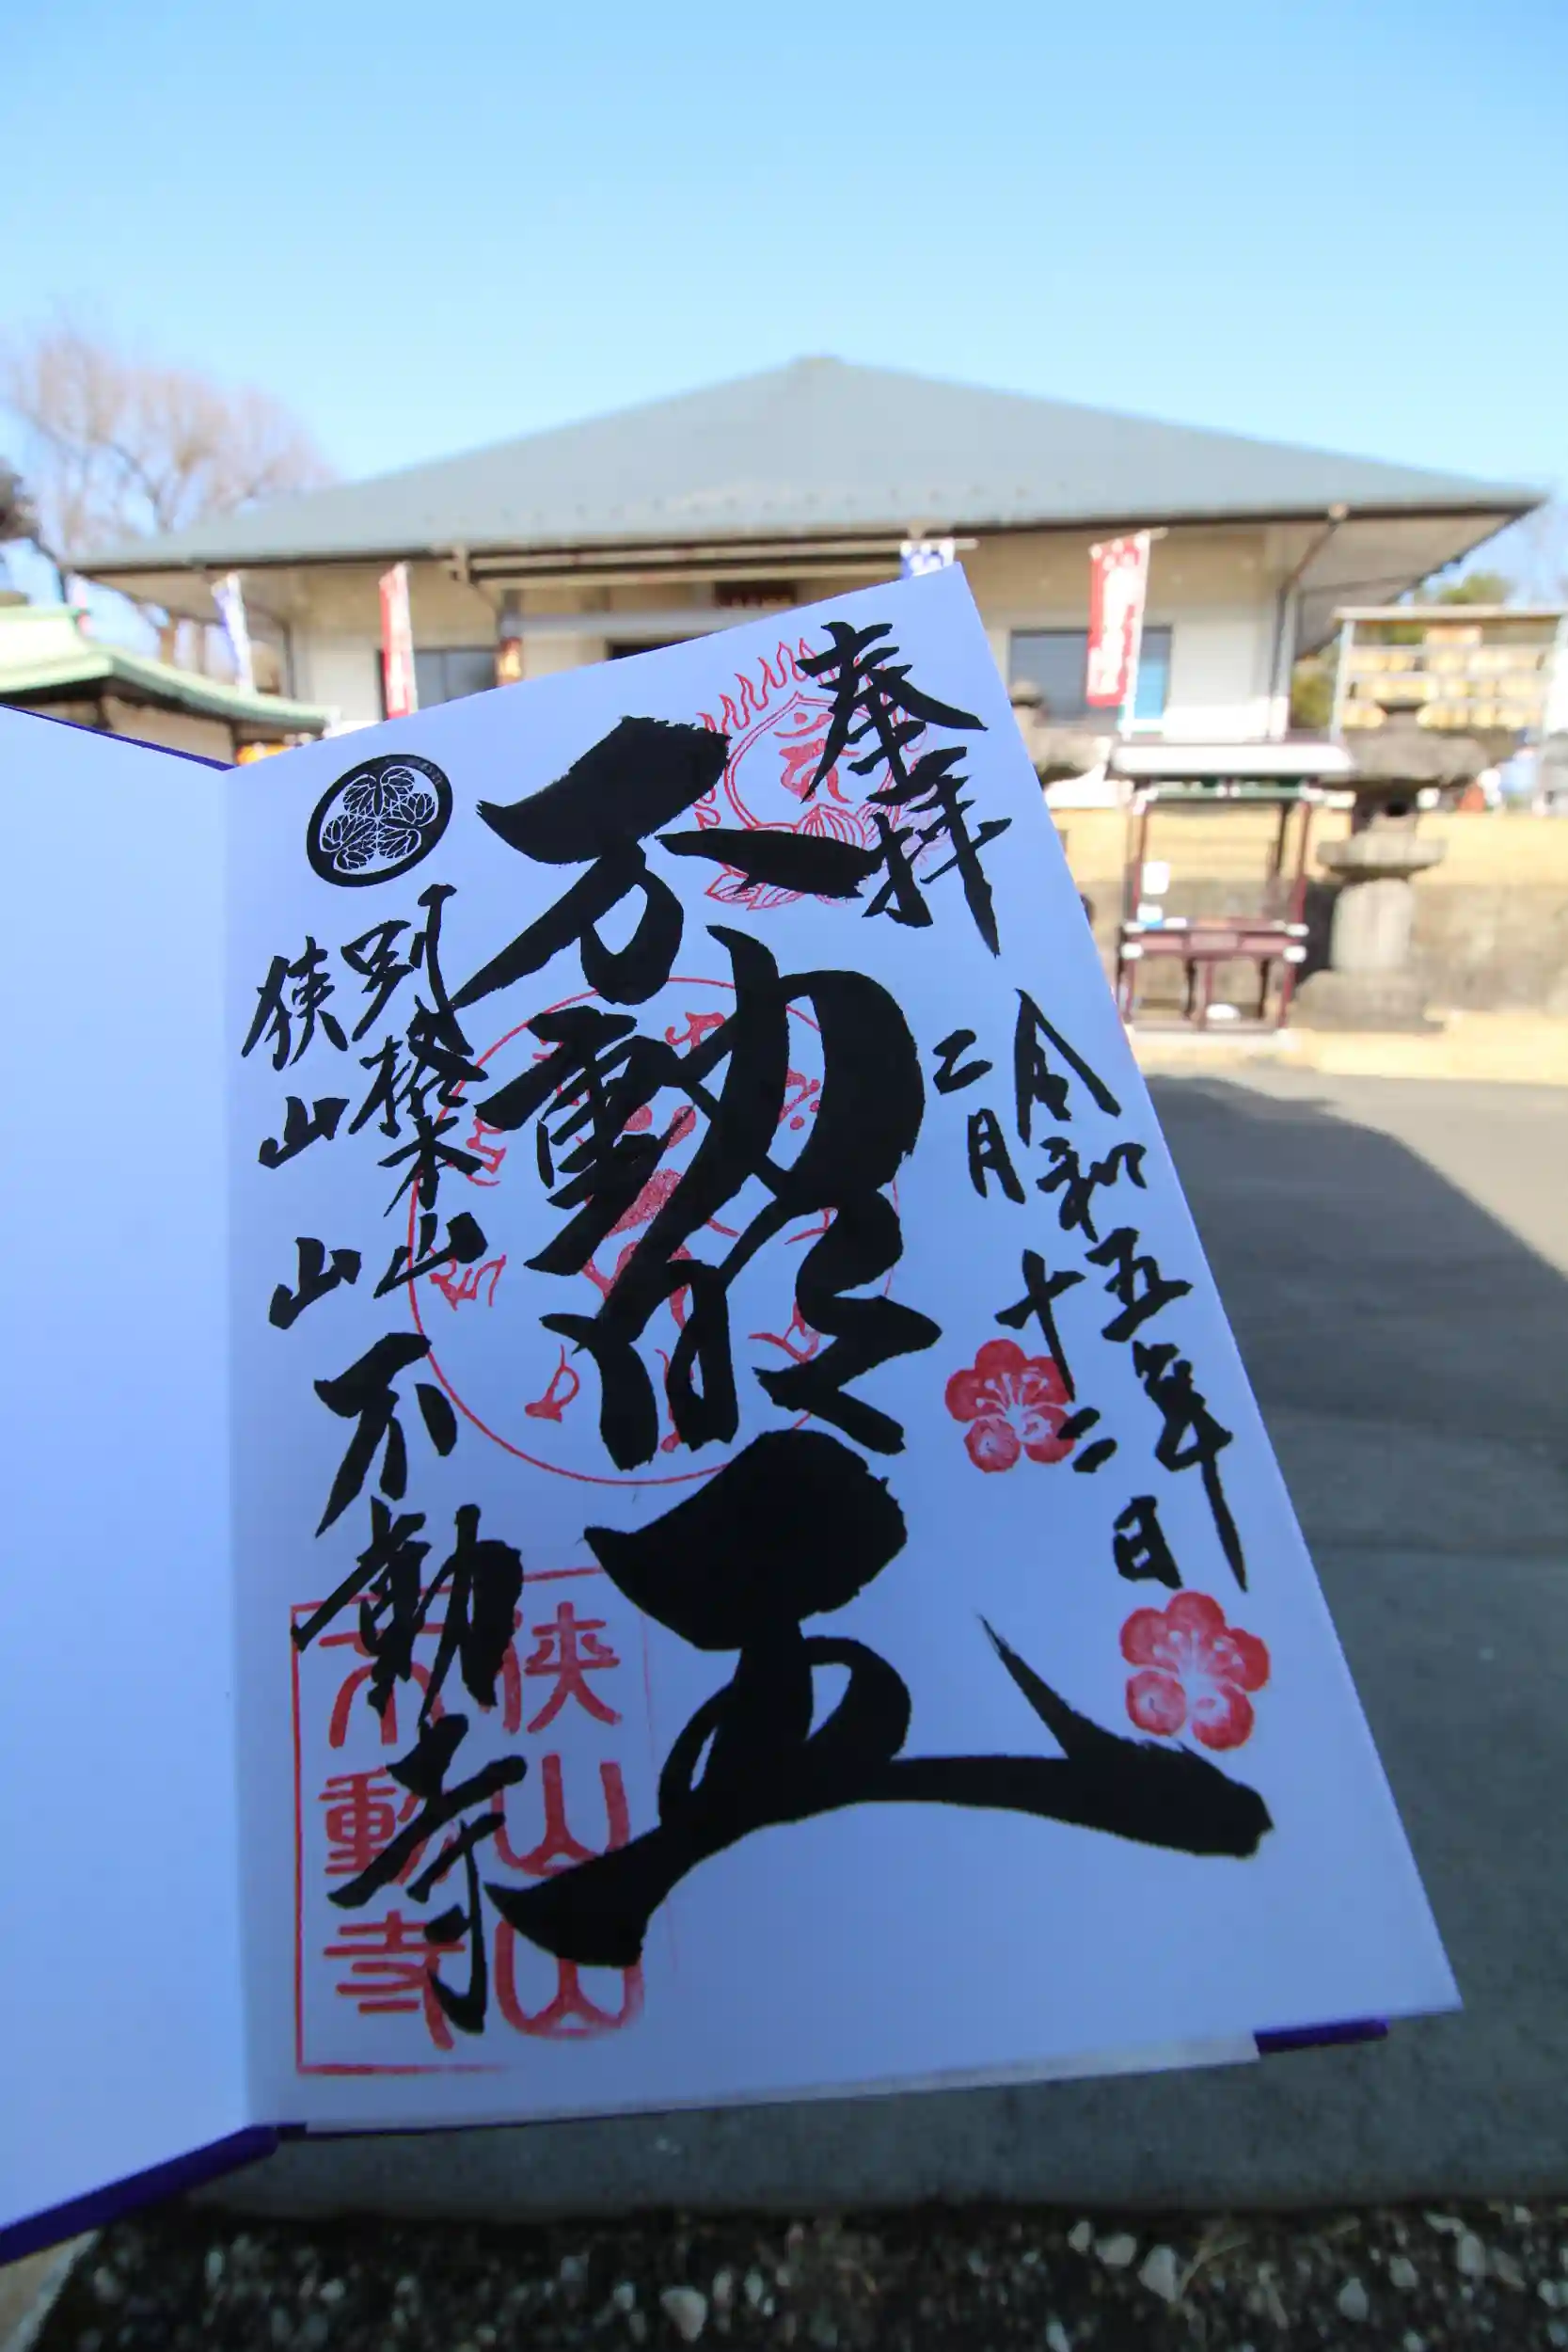 奉拝
令和五年
二月十二日
不動明王
別格本山
狭山山不動寺
狭山山
不動寺